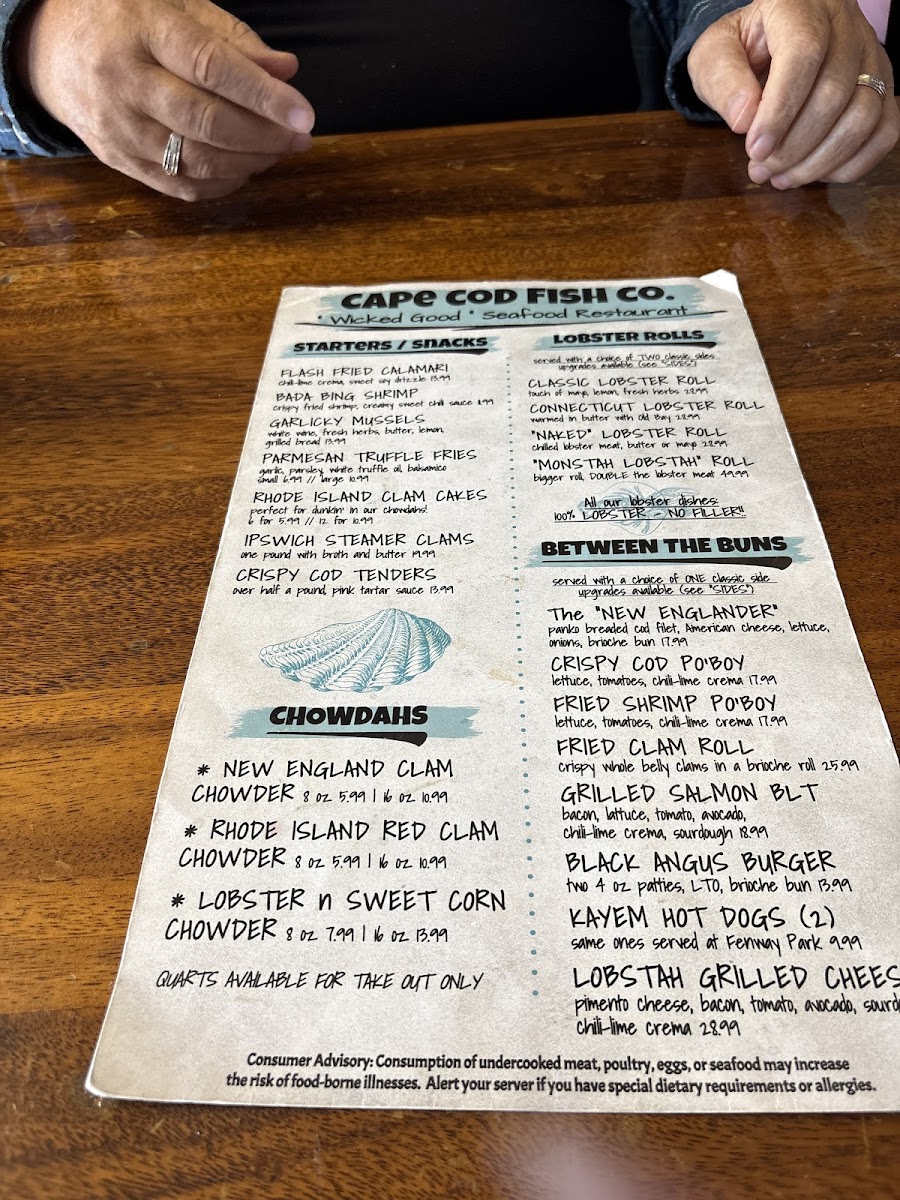 CAPE COD FISH CO.
"Wicked Good" Seafood Restaurant
STARTERS / SNACKS
FLASH FRIED CALAMARI
chili-lime crema, sweet soy drizzle 13.99
BADA BING SHRIMP
crispy fried shrimp, creamy sweet chili sauce 11.99
GARLICKY MUSSELS
white wine, fresh herbs, butter, lemon,
grilled bread 13.99
PARMESAN TRUFFLE FRIES
garlic, parsley, white truffle oil, balsamico
small 6.99 // large 10.99
RHODE ISLAND CLAM CAKES
perfect for dunkin' in our chowdahs!
6 for 5.99 // 12 for 10.99
IPSWICH STEAMER CLAMS
one pound with broth and butter 19.99
CRISPY COD TENDERS
over half a pound, pink tartar sauce 13.99
CHOWDAHS
* NEW ENGLAND CLAM
CHOWDER 8 oz 5.99 | 16 oz 10.99
* RHODE ISLAND RED CLAM
CHOWDER 8 oz 5.99 | 16 oz 10.99
* LOBSTER n SWEET CORN
CHOWDER 8 oz 7.99 | 16 oz 13.99
QUARTS AVAILABLE FOR TAKE OUT ONLY
LOBSTER ROLLS
served with a choice of TWO classic sides
upgrades available (see "SIDES")
CLASSIC LOBSTER ROLL
touch of mayo, lemon, fresh herbs 28.99
CONNECTICUT LOBSTER ROLL
warmed in butter with Old Bay 28.99
"NAKED" LOBSTER ROLL
chilled lobster meat, butter or mayo 28.99
"MONSTAH LOBSTAH" ROLL
bigger roll, DOUBLE the lobster meat 49.99
All our lobster dishes:
100% LOBSTER - NO FILLER!!
BETWEEN THE BUNS
served with a choice of ONE classic side
upgrades available (see "SIDES")
The "NEW ENGLANDER"
panko breaded cod filet, American cheese, lettuce,
onions, brioche bun 17.99
CRISPY COD PO'BOY
lettuce, tomatoes, chili-lime crema 17.99
FRIED SHRIMP PO'BOY
lettuce, tomatoes, chili-lime crema 17.99
FRIED CLAM ROLL
crispy whole belly clams in a brioche roll 25.99
GRILLED SALMON BLT
bacon, lattuce, tomato, avocado,
chili-lime crema, sourdough 18.99
BLACK ANGUS BURGER
two 4 oz patties, LTO, brioche bun 13.99
KAYEM HOT DOGS (2)
same ones served at Fenway Park 9.99
LOBSTAH GRILLED CHEES
pimento cheese, bacon, tomato, avocado, sourd
chili-lime crema 28.99
Consumer Advisory: Consumption of undercooked meat, poultry, eggs, or seafood may increase
the risk of food-borne illnesses. Alert your server if you have special dietary requirements or allergies.